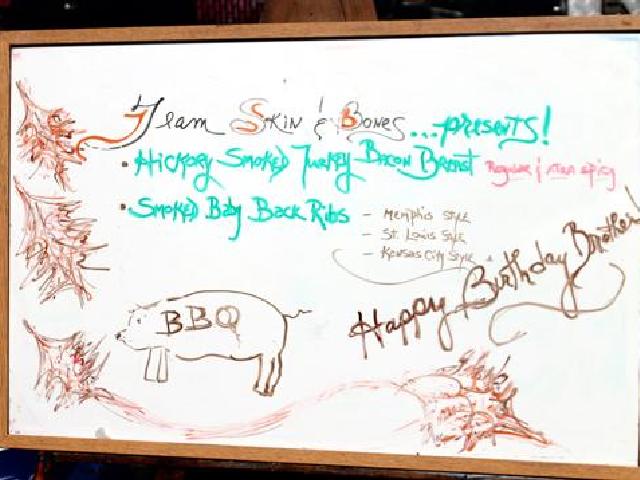 Team Skin & Bones...presents!
• Hickory Smoked Turkey Bacon Breast Regular & spicy
• Smoked Baby Back Ribs – Memphis Style
– St. Louis Style
– Kansas City Style
Happy Birthday Brother!
BBQ